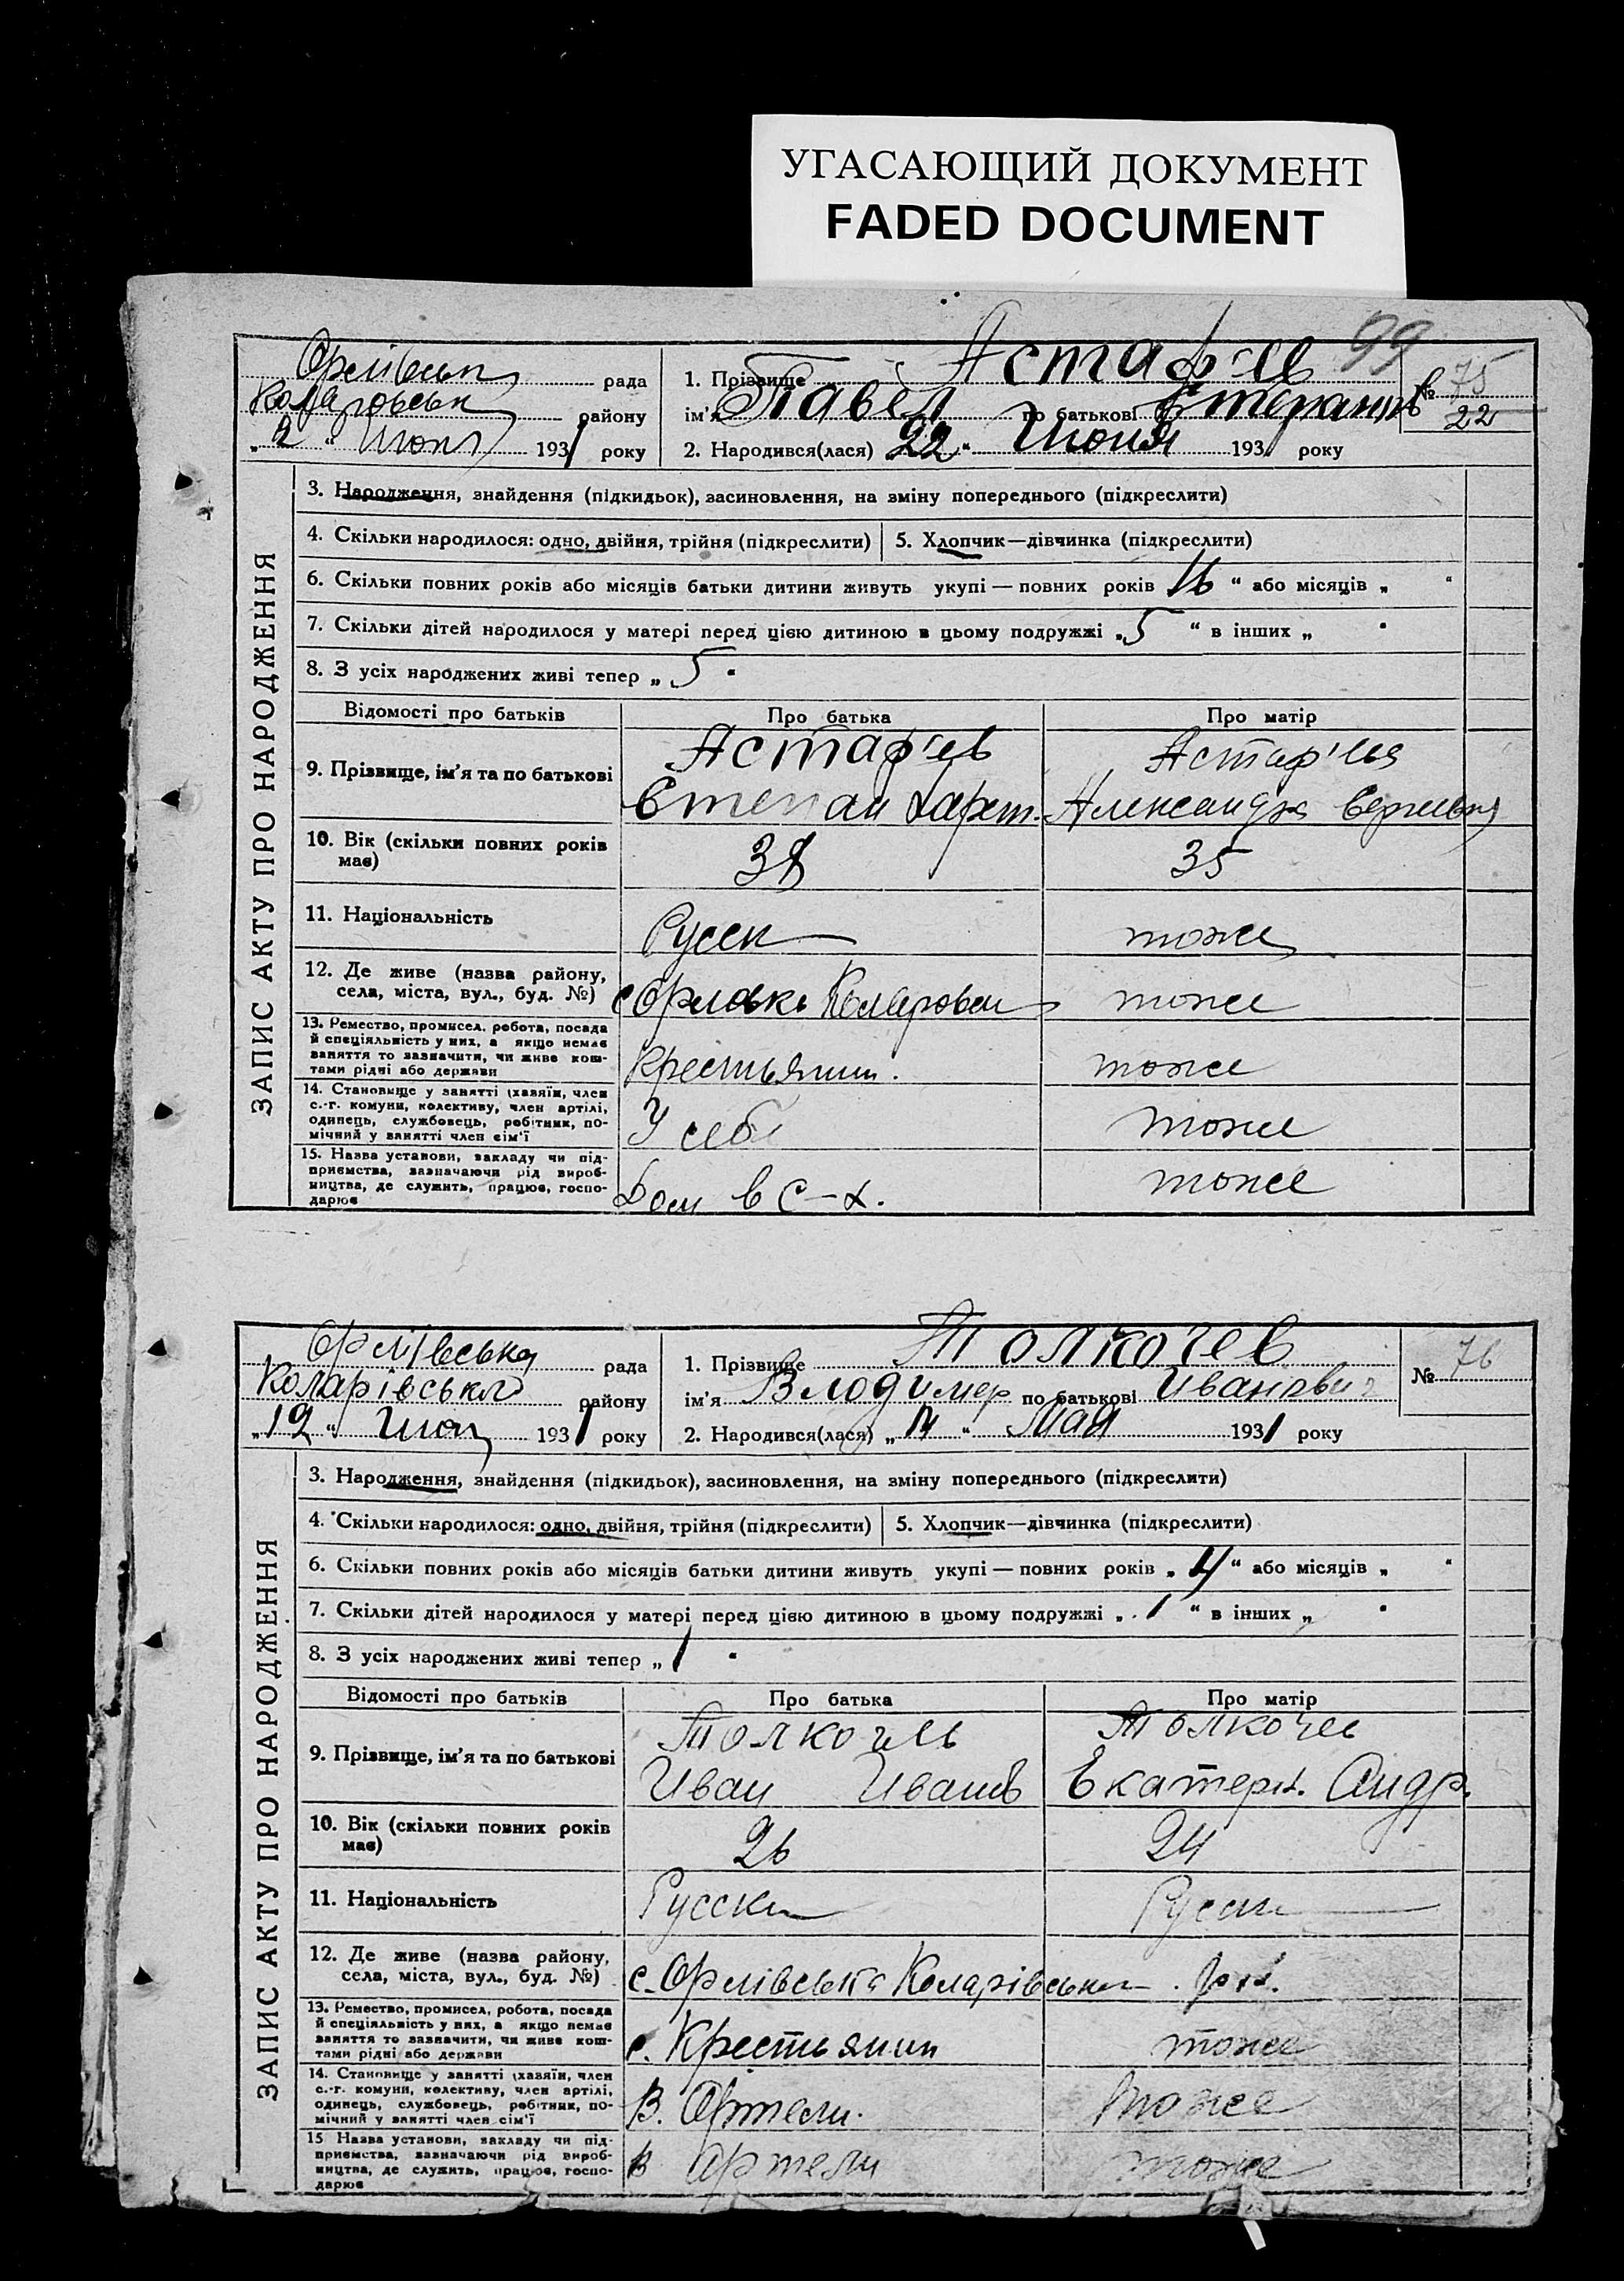 УГАСАЮЩИЙ ДОКУМЕНТ
FADED DOCUMENT
99
ЗАПИС АКТУ ПРО НАРОДЖЕННЯ
рада
району
1931 року
1. Прізвище Астаф'ев
ім'я Павел по батькові
2. Народився(лася) 22 " Июня 1931 року
№ 75
22
3. Народження, знайдення (підкидьок), засиновлення, на зміну попереднього (підкреслити)
4. Скільки народилося: одно, двійня, трійня (підкреслити)
5. Хлопчик—дівчинка (підкреслити)
6. Скільки повних років або місяців батьки дитини живуть укупі — повних років 16 " або місяців „ "
7. Скільки дітей народилося у матері перед цією дитиною в цьому подружжі „ 5 " в інших „ "
8. З усіх народжених живі тепер „ 5 "
Відомості про батьків
Про батька
Про матір
9. Прізвище, ім'я та по батькові
Астаф'ев
Степан
Александра
10. Вік (скільки повних років має)
38
35
11. Національність
Русск
тоже
12. Де живе (назва району, села, міста, вул., буд. №)
тоже
13. Ремество, промисел, робота, посада
й спеціяльність у них, а якщо немає
заняття то зазначити, чи живе кош-
тами рідні або держави
Крестьянин.
тоже
14. Становище у занятті (хазяїн, член
с.-г. комуни, колективу, член артілі,
одинець, службовець, робітник, по-
мічний у занятті член сім'ї
У себе
тоже
15. Назва установи, закладу чи під-
приємства, зазначаючи рід вироб-
ництва, де служить, працює, госпо-
дарює
Дом в с-х.
тоже
ЗАПИС АКТУ ПРО НАРОДЖЕННЯ
Орлівська рада
Коларівського району
„ 12 " 1931 року
1. Прізвище Толкочев
ім'я Влодимер по батькові Иванович
2. Народився(лася) „ " Мая 1931 року
№ 76
3. Народження, знайдення (підкидьок), засиновлення, на зміну попереднього (підкреслити)
4. Скільки народилося: одно, двійня, трійня (підкреслити)
5. Хлопчик—дівчинка (підкреслити)
6. Скільки повних років або місяців батьки дитини живуть укупі — повних років „ 4 " або місяців „ "
7. Скільки дітей народилося у матері перед цією дитиною в цьому подружжі „ 1 " в інших „ "
8. З усіх народжених живі тепер „ 1 "
Відомості про батьків
Про батька
Про матір
9. Прізвище, ім'я та по батькові
Толкочев
Иван Иванов
Толкочев
Екатерин. Андр.
10. Вік (скільки повних років має)
26
24
11. Національність
Русски
12. Де живе (назва району, села, міста, вул., буд. №)
с. Орлівська
13. Ремество, промисел, робота, посада
й спеціяльність у них, а якщо немає
заняття то зазначити, чи живе кош-
тами рідні або держави
Крестьянин
тоже
14. Становище у занятті (хазяїн, член
с.-г. комуни, колективу, член артілі,
одинець, службовець, робітник, по-
мічний у занятті член сім'ї
В. Артели.
тоже
15 Назва установи, закладу чи під-
приємства, зазначаючи рід вироб-
ництва, де служить, працює, госпо-
дарює
В артели
тоже